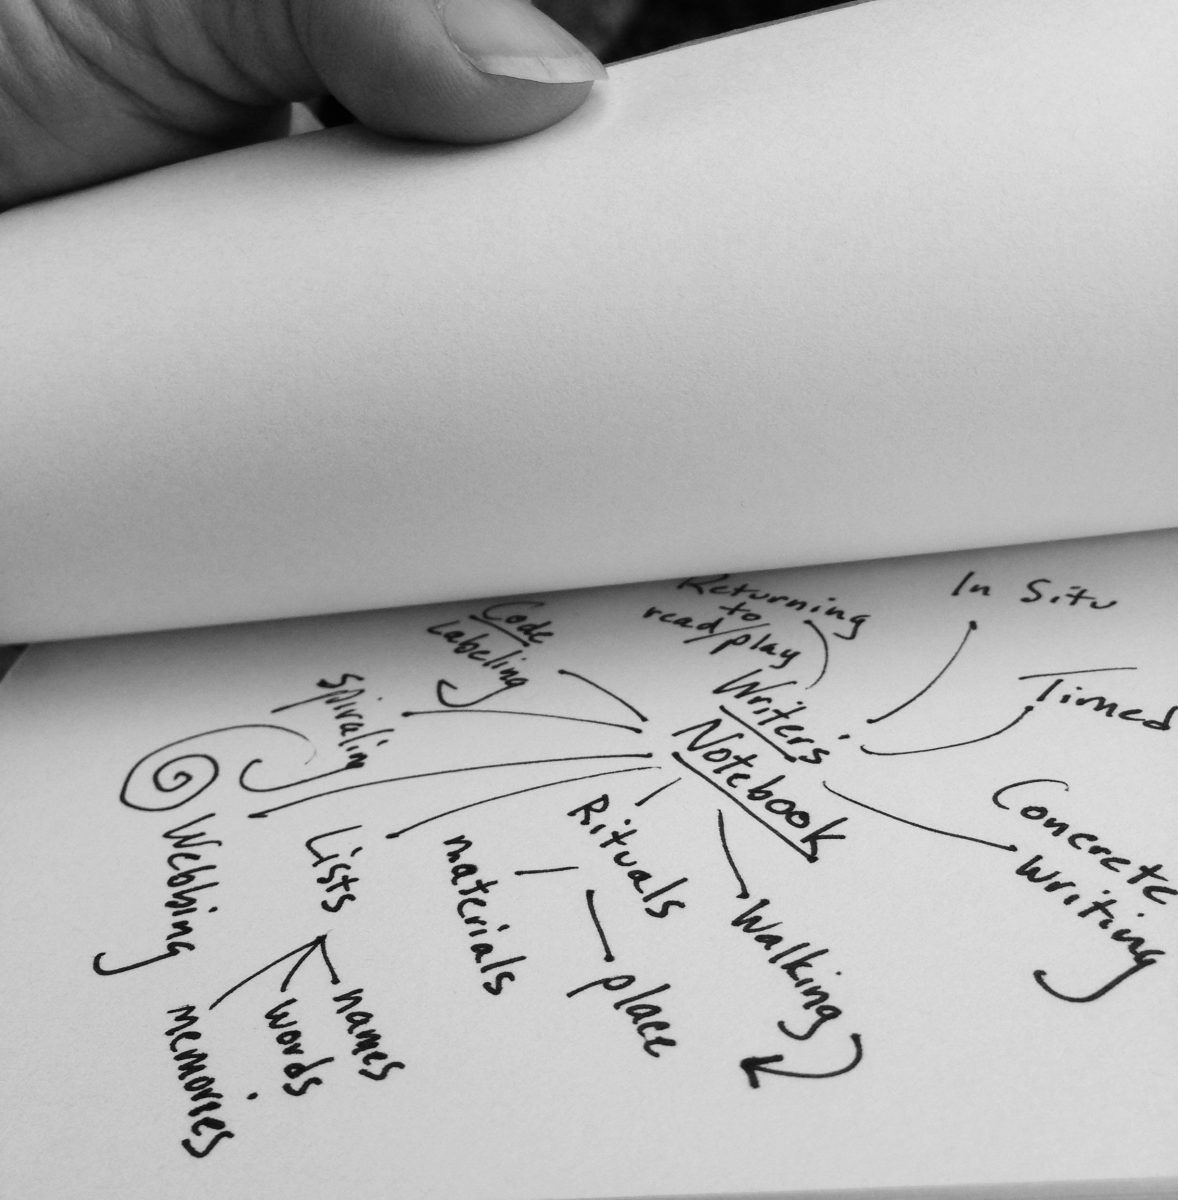 In Situ
Returning
to
read/play
Code
Labeling
Timed
Spiraling
Writers'
Notebook
Concrete
Writing
Rituals
Lists
Webbing
materials
Walking
place
names
words
memories